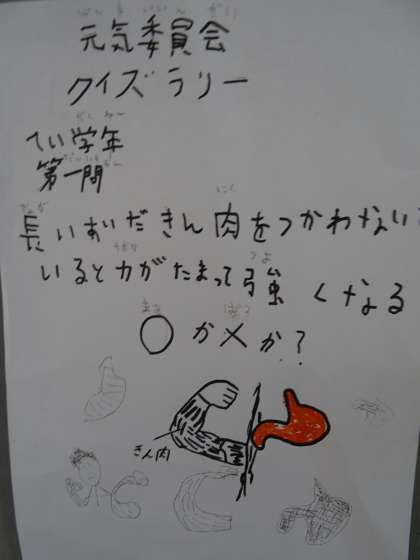 元気委員会
クイズラリー
てい学年
第一問
長いあいだきん肉をつかわない
いると力がたまって強くなる
○か×か?
きん肉